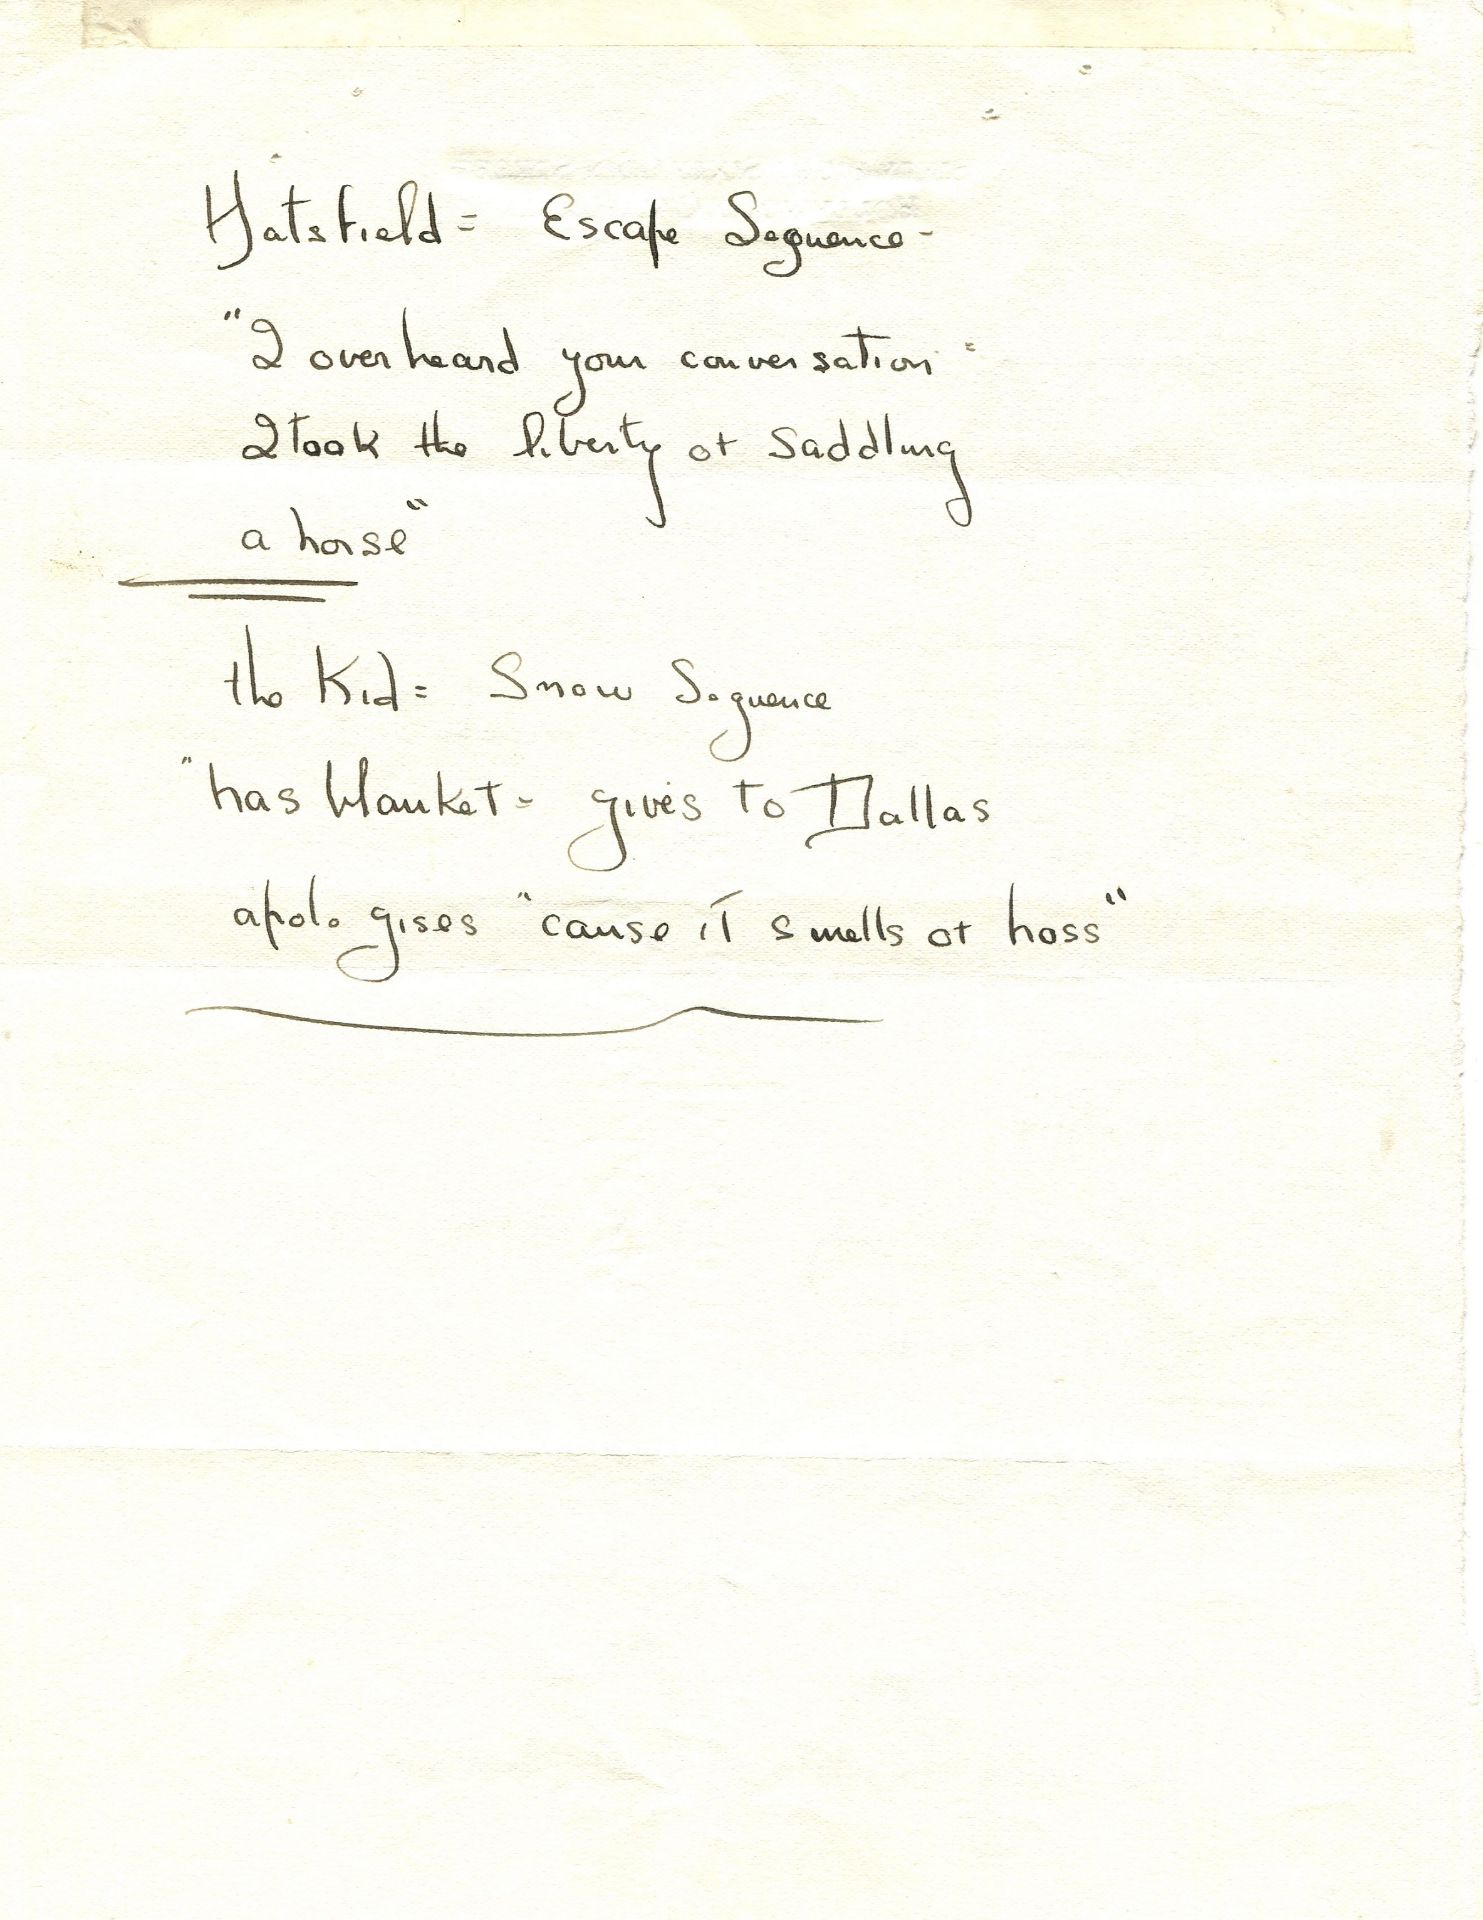 Hatsfield = Escape Sequence -
"I overheard your conversation =
I took the liberty of saddling
a horse"
the Kid = Snow Sequence
"has blanket = gives to Dallas
apologises "cause it smells of hoss"